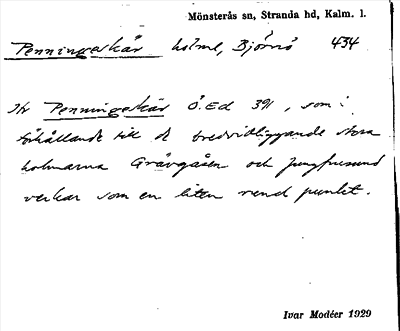 Mönsterås sn, Stranda hd, Kalm. l.
Penningeskär holme, Björnö 434
Str Penningeskär Ö. Ed 391, som i
förhållande till de bredvidliggande stora
holmarna Grävgåsen och Jungfrusund
verkar som en liten rund punkt.
Ivar Modéer 1929